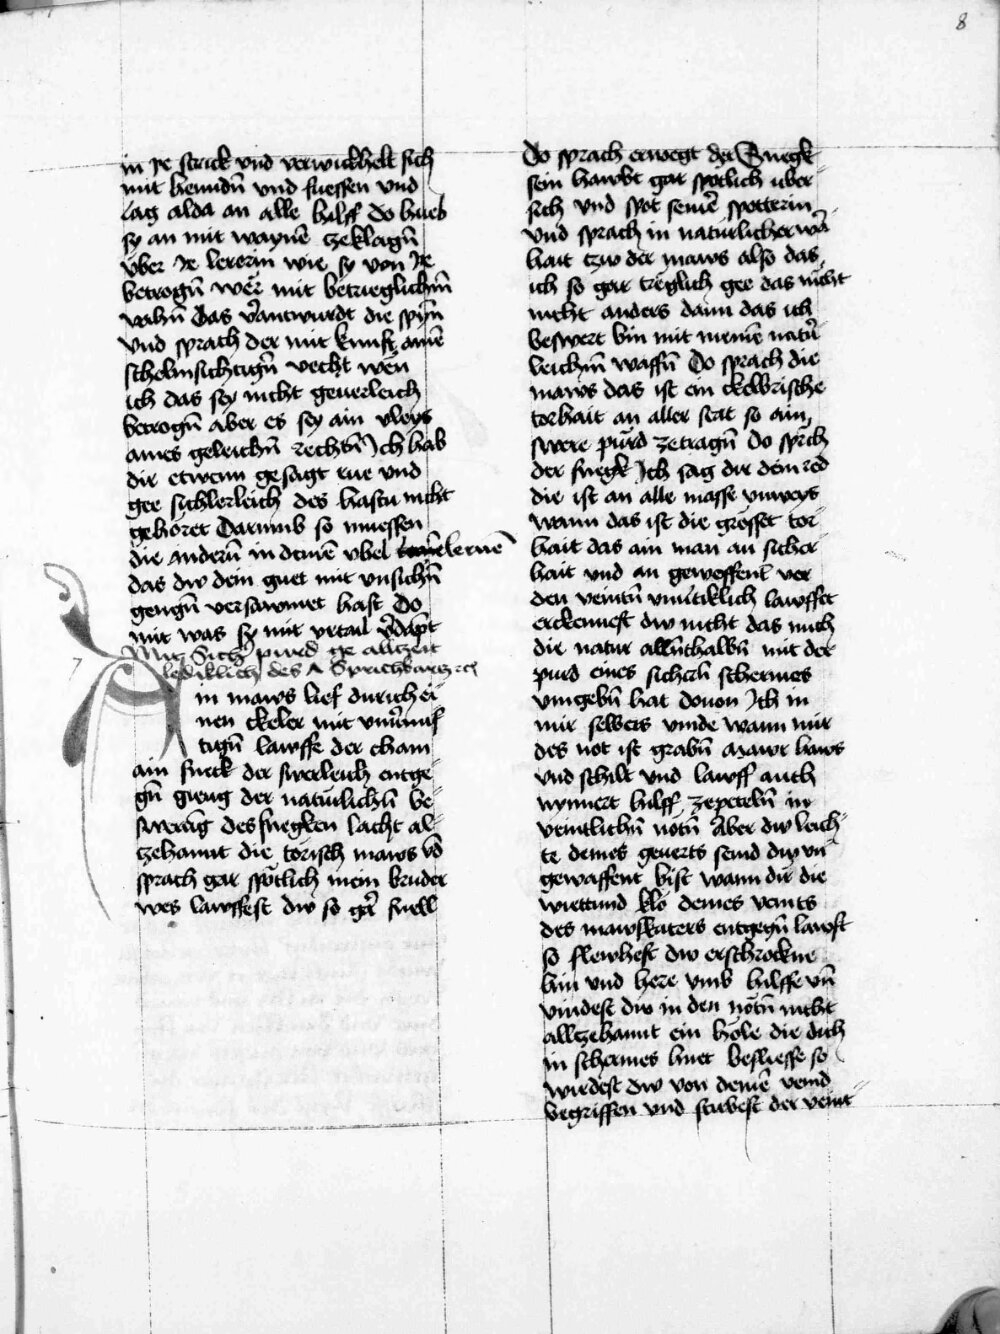 8
in Je strick vnd verwickhelt sich
mit henndn̄ vnd fuessen vnd
lag alda an alle hilff do hueb
sy an mit waynē zeklagn̄
vber Je lererin wie sy von Je
betrogn̄ wër mit betrieglichm̄
wehn̄ Das v̄antwurdt die spyn̄
vnd sprach der mit kunst ainē
schelmsichtign̄ vecht wen̄
ich das sey nicht geuerleich
betrogn̄ aber es sey ain vleys
aines geleichn̄ rechtn̄ Ich hab
dir etwenn gesagt rue vnd
gee sichlerleich des hastu nicht
gehöret Darumb so muessen
die andern̄ in deinē vbel lernē
das dw dein guet mit vnsichn̄
gengn̄ versawmet hast Do
mit was sy mit vrtail v̄dāpt
Mit Sich pürd ge allzeit
lediklich des A Sprichbartz etc
7
in maws lief durich ei-
nen ckeler mit vnuernuf
tign̄ lawffe der cham
ain sneck der swerleich entge-
gn̄ gieng der naturlichn̄ be-
swerāg des snegken lacht al-
tzehannt die törisch maws vd
sprach gar spötlich mein bruder
wes lawffest dw so gar snell
Do sprach erwegt der Snegk
sein hawbt gar spotlich uber-
sich vnd spot seinē spotterin
vnd sprach in naturlicher wā
hait tzw der maws also das
ich so gar treglich gee das nicht
nicht anders dann das ich
beswert bin mit meinē natur
leichn̄ waffn̄ Do sprach die
maws das ist ein ckelbrische
torhait an aller stat so ain
swere pürd zetragn̄ do sprch
der snegk Ich sag dir dein red
die ist an alle masse vnweys
wann das ist die grösset tor-
hait das ain man an sicher-
hait vnd an geweffent vor
den veintn̄ vnutiklich lawffet
erckennest dw nicht das mich
die natur alln̄thalbn̄ mit der
purd eines sichern̄ schermes
vmgebn̄ hat dovon Ich in
mir selbers vinde wann mir
des not ist grabn̄ mawr haws
vnd schilt vnd lawff auch
nymert hilff zepeteln̄ in
veintlichn̄ nötn̄ Aber dw leich-
te deines geuerts seind dw vn
gewaffent bist wann dir die
wiettund klo deines veints
des mawskaters entgegn̄ lawft
so flewhest dw erschrockne
hin vnd here vmb hilffe vn̄
vindest dw in den nötn̄ nicht
alltzehannt ein höle die dich
in schermes huet besliesse so
wirdest dw von deinē veind
begriffen vnd stirbest der veint